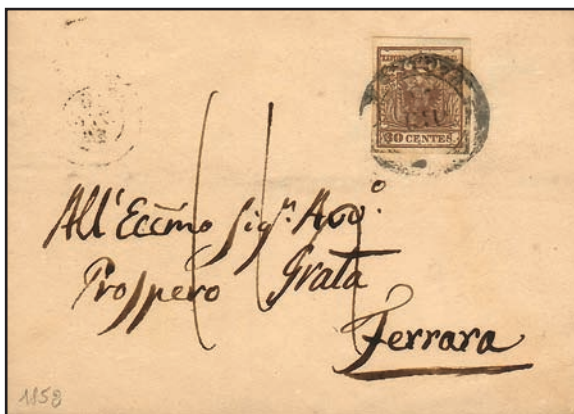 30 CENTES.
All'Eccm̃o Sigʳ. Avvº.
Prospero Grata
Ferrara
1858